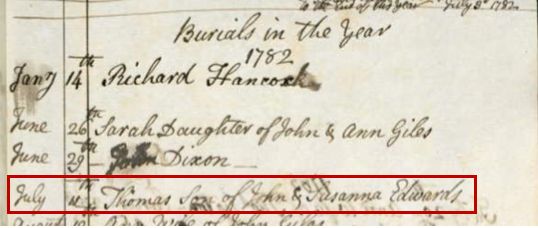 of the year July 3d 1782
Burials in the Year
1782
Jany 14th Richard Hancock
June 26th Sarah Daughter of John & Ann Giles
June 29th Dixon
July th Thomas Son of John & Susanna Edwards
August Wife of John Giles